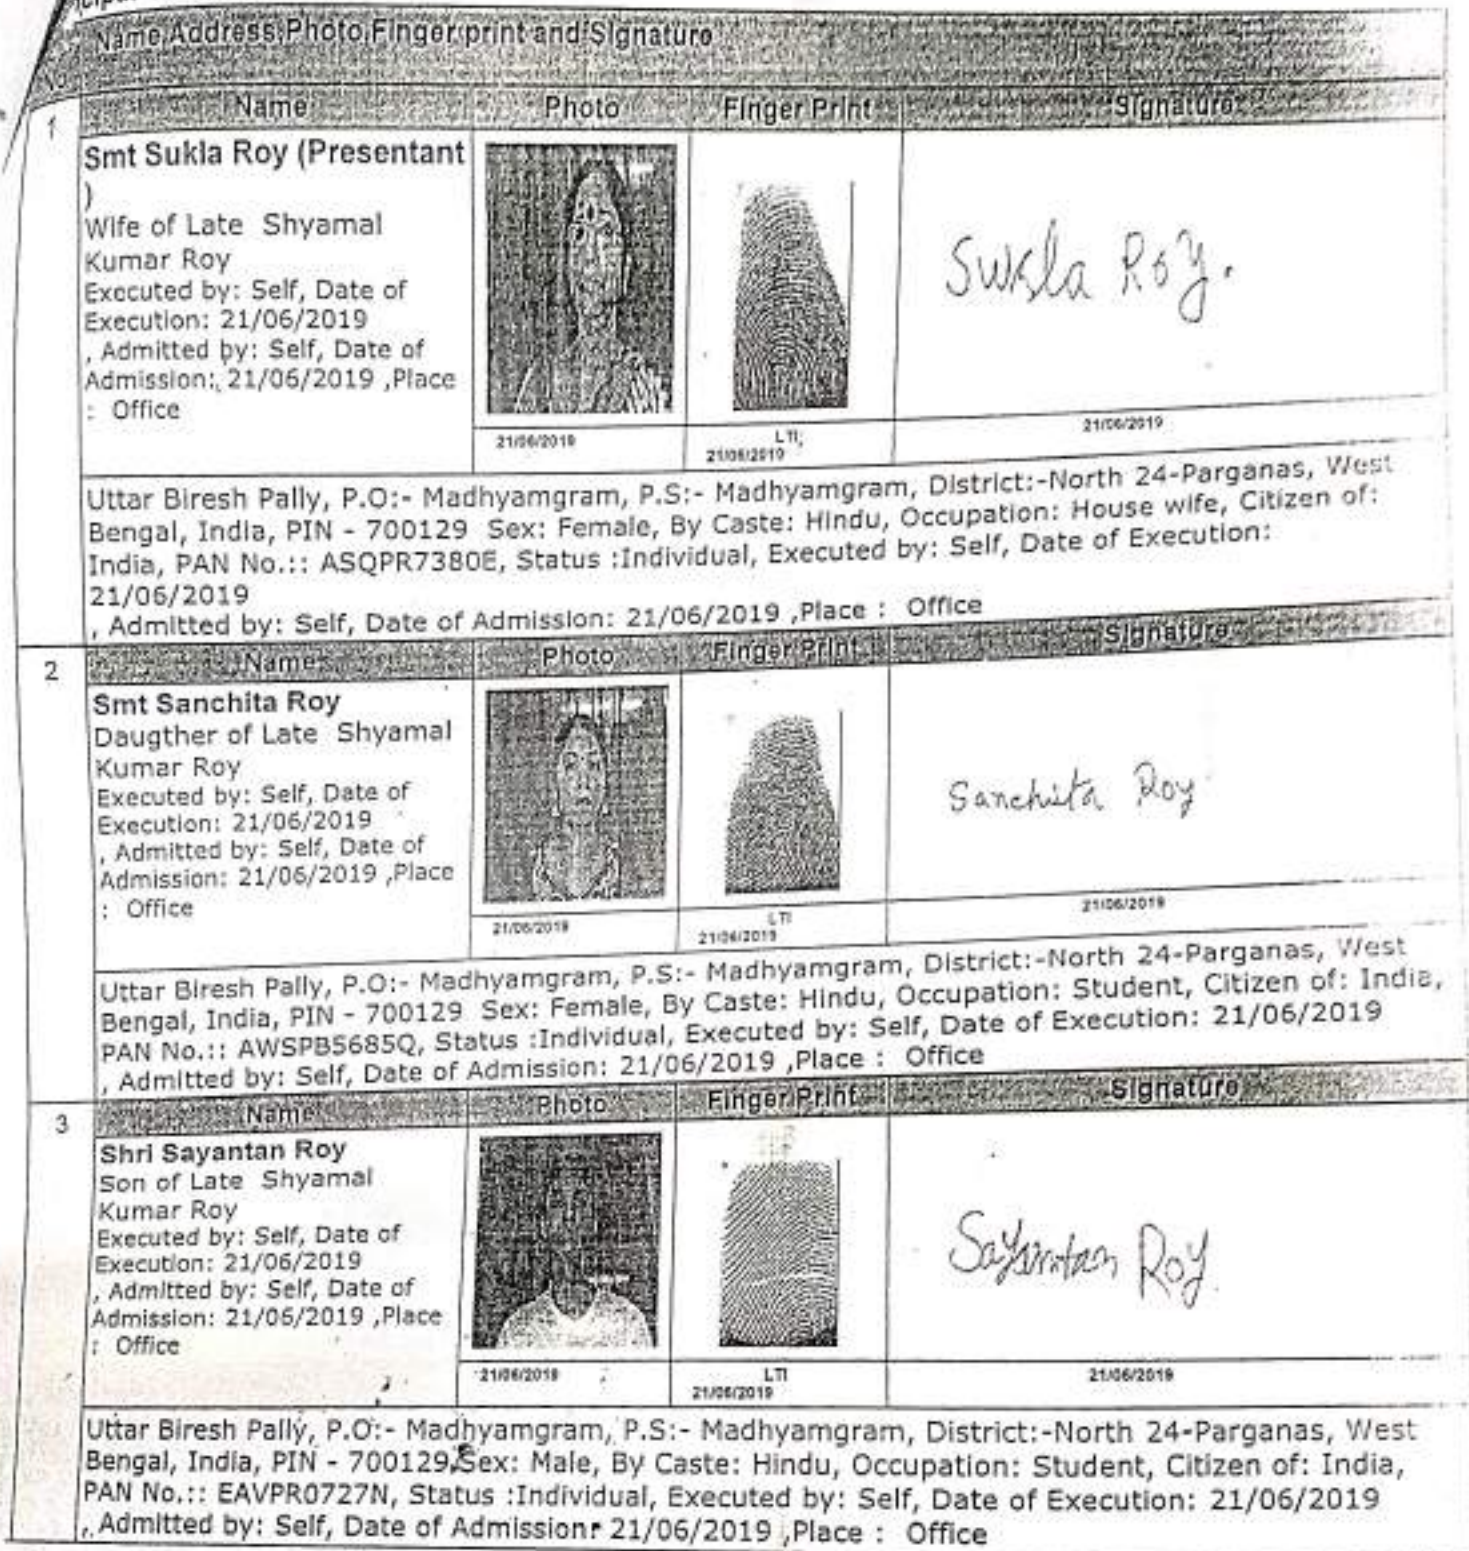 Name,Address,Photo,Finger print and Signature
Name Photo Finger Print Signature
1
Smt Sukla Roy (Presentant
)
Wife of Late Shyamal
Kumar Roy
Executed by: Self, Date of
Execution: 21/06/2019
, Admitted by: Self, Date of
Admission: 21/06/2019 ,Place
: Office
Sukla Roy.
21/06/2019
LTI
21/06/2019
21/06/2019
Uttar Biresh Pally, P.O:- Madhyamgram, P.S:- Madhyamgram, District:-North 24-Parganas, West
Bengal, India, PIN - 700129 Sex: Female, By Caste: Hindu, Occupation: House wife, Citizen of:
India, PAN No.:: ASQPR7380E, Status :Individual, Executed by: Self, Date of Execution:
21/06/2019
, Admitted by: Self, Date of Admission: 21/06/2019 ,Place : Office
2
Name Photo Finger Print Signature
Smt Sanchita Roy
Daugther of Late Shyamal
Kumar Roy
Executed by: Self, Date of
Execution: 21/06/2019
, Admitted by: Self, Date of
Admission: 21/06/2019 ,Place
: Office
Sanchita Roy
21/06/2019
LTI
21/06/2019
21/06/2019
Uttar Biresh Pally, P.O:- Madhyamgram, P.S:- Madhyamgram, District:-North 24-Parganas, West
Bengal, India, PIN - 700129 Sex: Female, By Caste: Hindu, Occupation: Student, Citizen of: India,
PAN No.:: AWSPB5685Q, Status :Individual, Executed by: Self, Date of Execution: 21/06/2019
, Admitted by: Self, Date of Admission: 21/06/2019 ,Place : Office
3
Name Photo Finger Print Signature
Shri Sayantan Roy
Son of Late Shyamal
Kumar Roy
Executed by: Self, Date of
Execution: 21/06/2019
, Admitted by: Self, Date of
Admission: 21/06/2019 ,Place
: Office
Sayantan Roy
21/06/2019
LTI
21/06/2019
21/06/2019
Uttar Biresh Pally, P.O:- Madhyamgram, P.S:- Madhyamgram, District:-North 24-Parganas, West
Bengal, India, PIN - 700129, Sex: Male, By Caste: Hindu, Occupation: Student, Citizen of: India,
PAN No.:: EAVPR0727N, Status :Individual, Executed by: Self, Date of Execution: 21/06/2019
, Admitted by: Self, Date of Admission: 21/06/2019 ,Place : Office